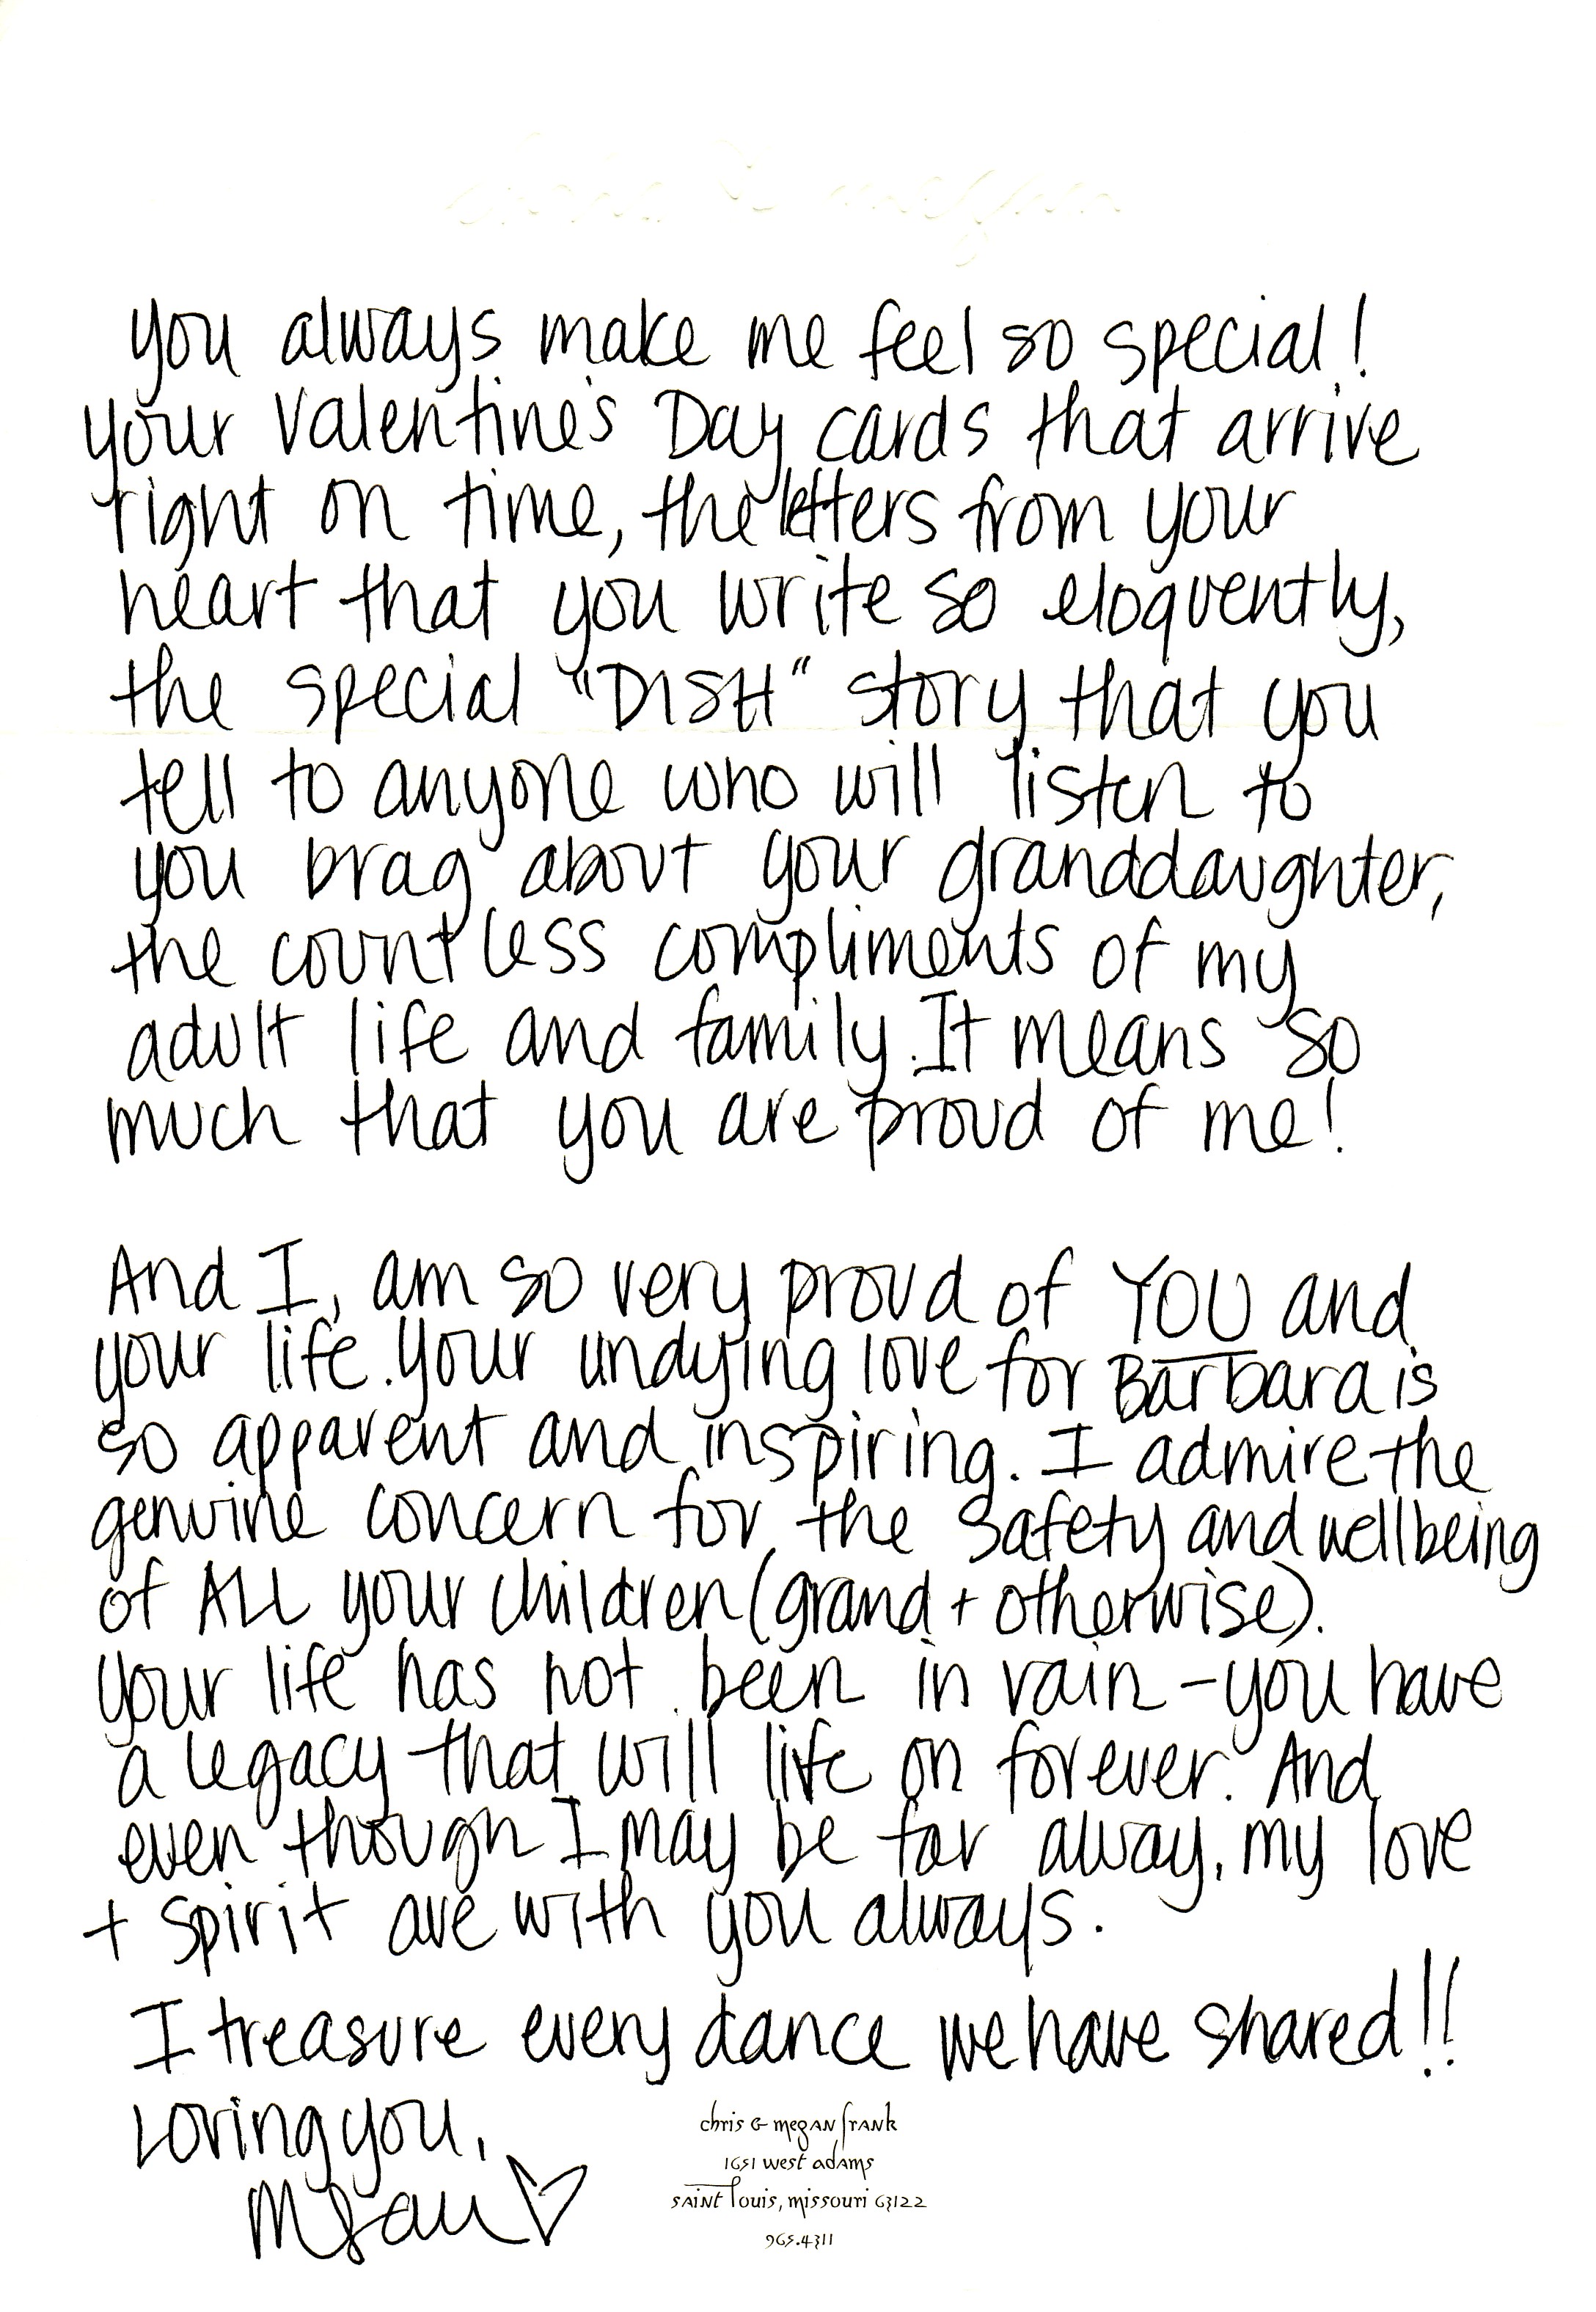 you always make me feel so special!
your Valentine's Day cards that arrive
right on time, the letters from your
heart that you write so eloquently,
the special "DISH" story that you
tell to anyone who will listen to
you brag about your granddaughter,
the countless compliments of my
adult life and family. It means so
much that you are proud of me!
And I, am so very proud of YOU and
your life. Your undying love for Barbara is
so apparent and inspiring. I admire the
genuine concern for the safety and wellbeing
of ALL your children (grand + otherwise).
Your life has not been in vain - you have
a legacy that will life on forever. And
even though I may be far away, my love
+ spirit are with you always.
I treasure every dance we have shared!!
Loving you,
Megan
chris & megan frank
1651 west adams
saint louis, missouri 63122
965.4311